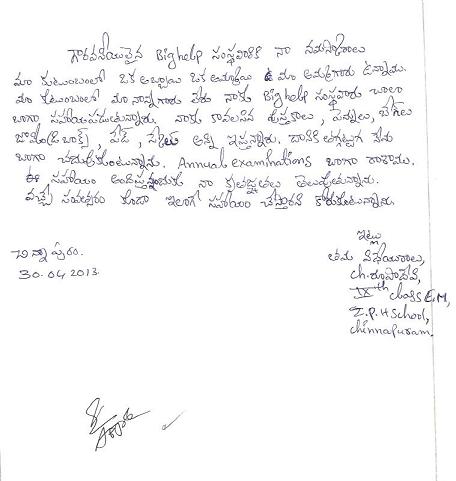 గౌరవనీయులైన Bighelp సంస్థవారికి నా నమస్కారాలు
మా కుటుంబంలో ఒక అబ్బాయి ఒక అమ్మాయి మా అమ్మగారు ఉన్నాము.
మా కుటుంబంలో మా నాన్నగారు లేరు నాకు Bighelp సంస్థవారు చాలా
బాగా సహాయపడుతున్నారు. నాకు కావలసిన పుస్తకాలు, పెన్నులు, బేగ్‌లు
జామెట్రీబాక్స్, పేడ్, స్కేలు అన్ని ఇస్తున్నారు. దానికి తగ్గట్టుగ నేను
బాగా చదువుకుంటున్నాను. Annual examinations బాగా రాశాము.
ఈ సహాయం అందిస్తున్నందుకు నా కృతజ్ఞతలు తెలుపుతున్నాను.
వచ్చే సంవత్సరం కూడా ఇలాగే సహాయం చేస్తారని కోరుకుంటున్నాను.
ఇట్లు
చిన్నాపురం.
30.04.2013.
తమ విధేయురాలు,
ch. రూపాదేవి,
IXth class E.M,
Z.P.H School,
chinnapuram.